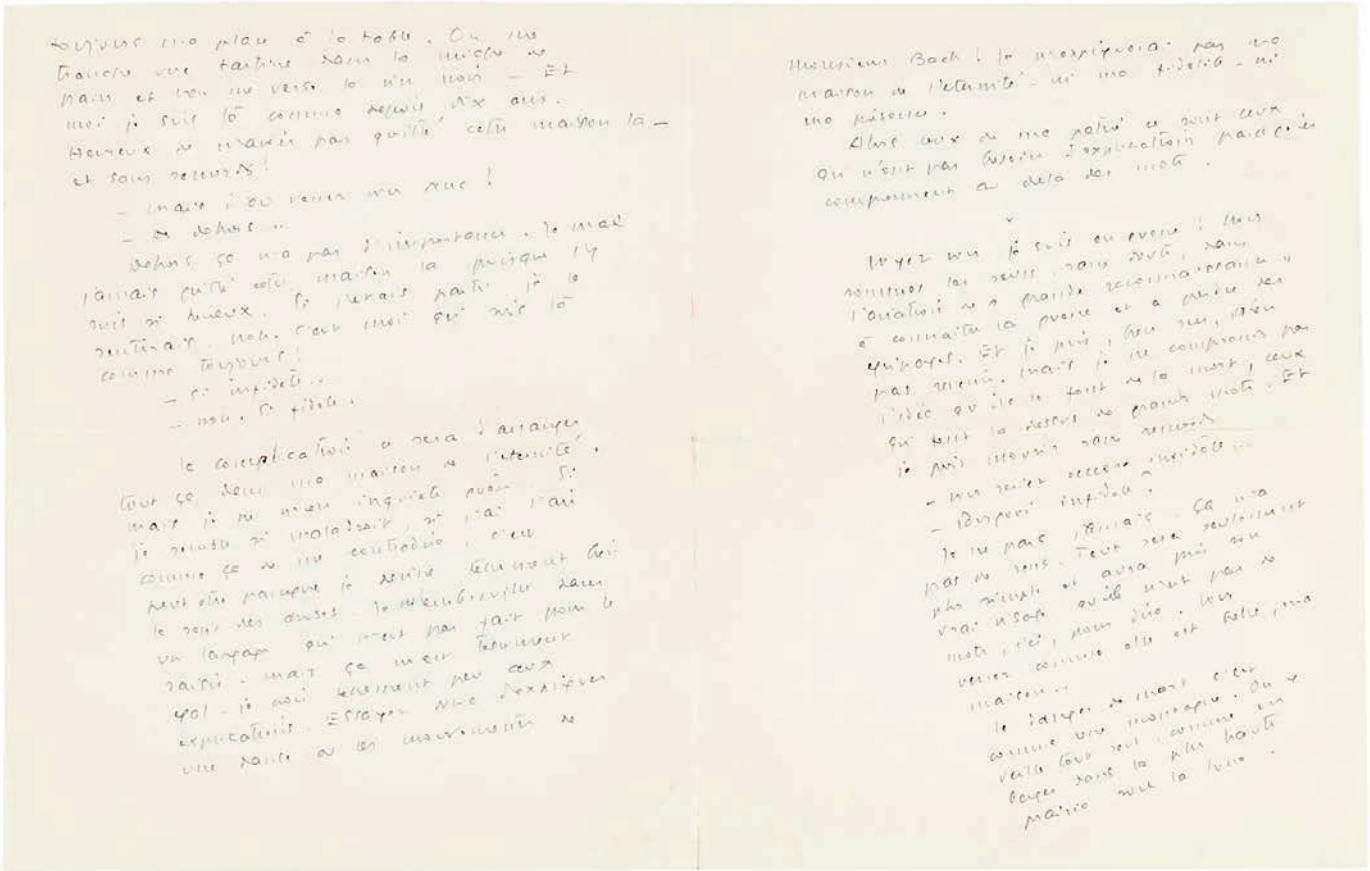 toujours ma place à la table. On me
tranche une tartine dans la miche de
pain et l'on me verse le vin noir - Et
moi je suis là comme depuis dix ans.
Heureux de n'avoir pas quitté cette maison là -
et sans remords!
- mais d'où venez vous donc!
- de dehors..
dehors ça n'a pas d'importance. Je n'ai
jamais quitté cette maison là puisque j'y
suis si heureux. Si j'étais parti je le
sentirais. Non. C'est moi qui suis là
comme toujours!
- Si infidèle..
- non. Si fidèle.
la complication ce sera d'arranger
tout ça dans ma maison de l'éternité.
mais je ne m'en inquiète guère. Si
je semble si maladroit, si j'ai l'air
comme ça de me contredire, c'est
peut être parceque je devine tellement bien
le sens des choses. Je m'embrouille dans
un langage qui n'est pas fait pour le
saisir - mais ça m'est tellement
égal - je vois tellement peu ceux
explications. Essayez donc d'expliquer
une danse ou les mouvements de
Monsieur Bach! Je n'expliquerai pas ma
maison de l'éternité - ni ma fidélité - ni
ma présence.
Alors ceux de ma patrie ce sont ceux
qui n'ont pas besoin d'explication parce qu'ils
comprennent au delà des mots.
Voyez vous je suis en guerre! Nous
sommes les seuls, sans doute, dans
l'aviation de grande reconnaissance,
à connaître la guerre et à perdre des
équipages. Et je puis, bien sûr, n'en
pas revenir. mais je ne comprends pas
l'idée qu'ils se font de la mort, ceux
qui font là dessus de grands mots. Et
je puis mourir sans remords
- vous seriez encore infidèle...
- Pourquoi infidèle?
Je ne pars jamais. Ça n'a
pas de sens. Tout sera seulement
plus simple et aura pris son
vrai visage qu'ils n'ont pas de
mots, ici, pour dire. Vous
verrez comme elle est belle, ma
maison..
le danger de mort c'est
comme une montagne. On y
veille tout seul, comme un
berger dans la plus haute
prairie sous la lune.